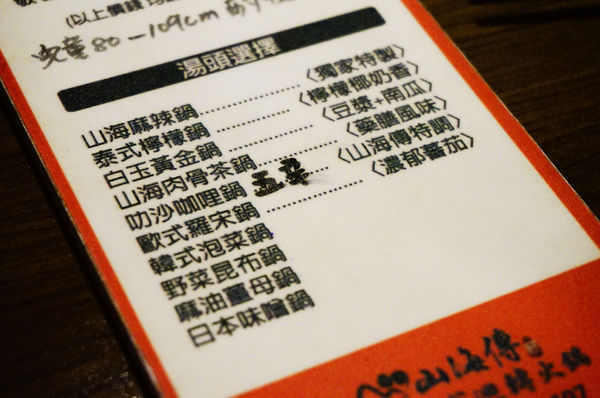 (以上價錢均
兒童80-109cm
湯頭選擇
山海麻辣鍋 〈獨家特製〉
泰式檸檬鍋 〈檸檬椰奶香〉
白玉黃金鍋 〈豆漿+南瓜〉
山海肉骨茶鍋 〈藥膳風味〉
叻沙咖哩鍋 〈山海傳特調〉
歐式羅宋鍋 〈濃郁蕃茄〉
韓式泡菜鍋
野菜昆布鍋
麻油薑母鍋
日本味噌鍋
山海傳
火鍋